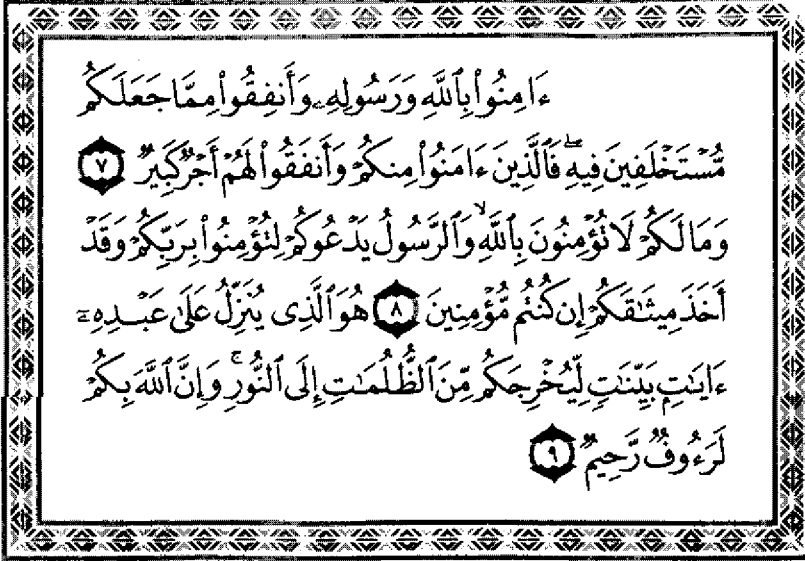 ءَامِنُوا۟ بِٱللَّهِ وَرَسُولِهِۦ وَأَنفِقُوا۟ مِمَّا جَعَلَكُم
مُّسْتَخْلَفِينَ فِيهِ ۖ فَٱلَّذِينَ ءَامَنُوا۟ مِنكُمْ وَأَنفَقُوا۟ لَهُمْ أَجْرٌ كَبِيرٌ ٧
وَمَا لَكُمْ لَا تُؤْمِنُونَ بِٱللَّهِ ۙ وَٱلرَّسُولُ يَدْعُوكُمْ لِتُؤْمِنُوا۟ بِرَبِّكُمْ وَقَدْ
أَخَذَ مِيثَـٰقَكُمْ إِن كُنتُم مُّؤْمِنِينَ ٨ هُوَ ٱلَّذِى يُنَزِّلُ عَلَىٰ عَبْدِهِۦٓ
ءَايَـٰتٍۭ بَيِّنَـٰتٍ لِّيُخْرِجَكُم مِّنَ ٱلظُّلُمَـٰتِ إِلَى ٱلنُّورِ ۚ وَإِنَّ ٱللَّهَ بِكُمْ
لَرَءُوفٌ رَّحِيمٌ ٩